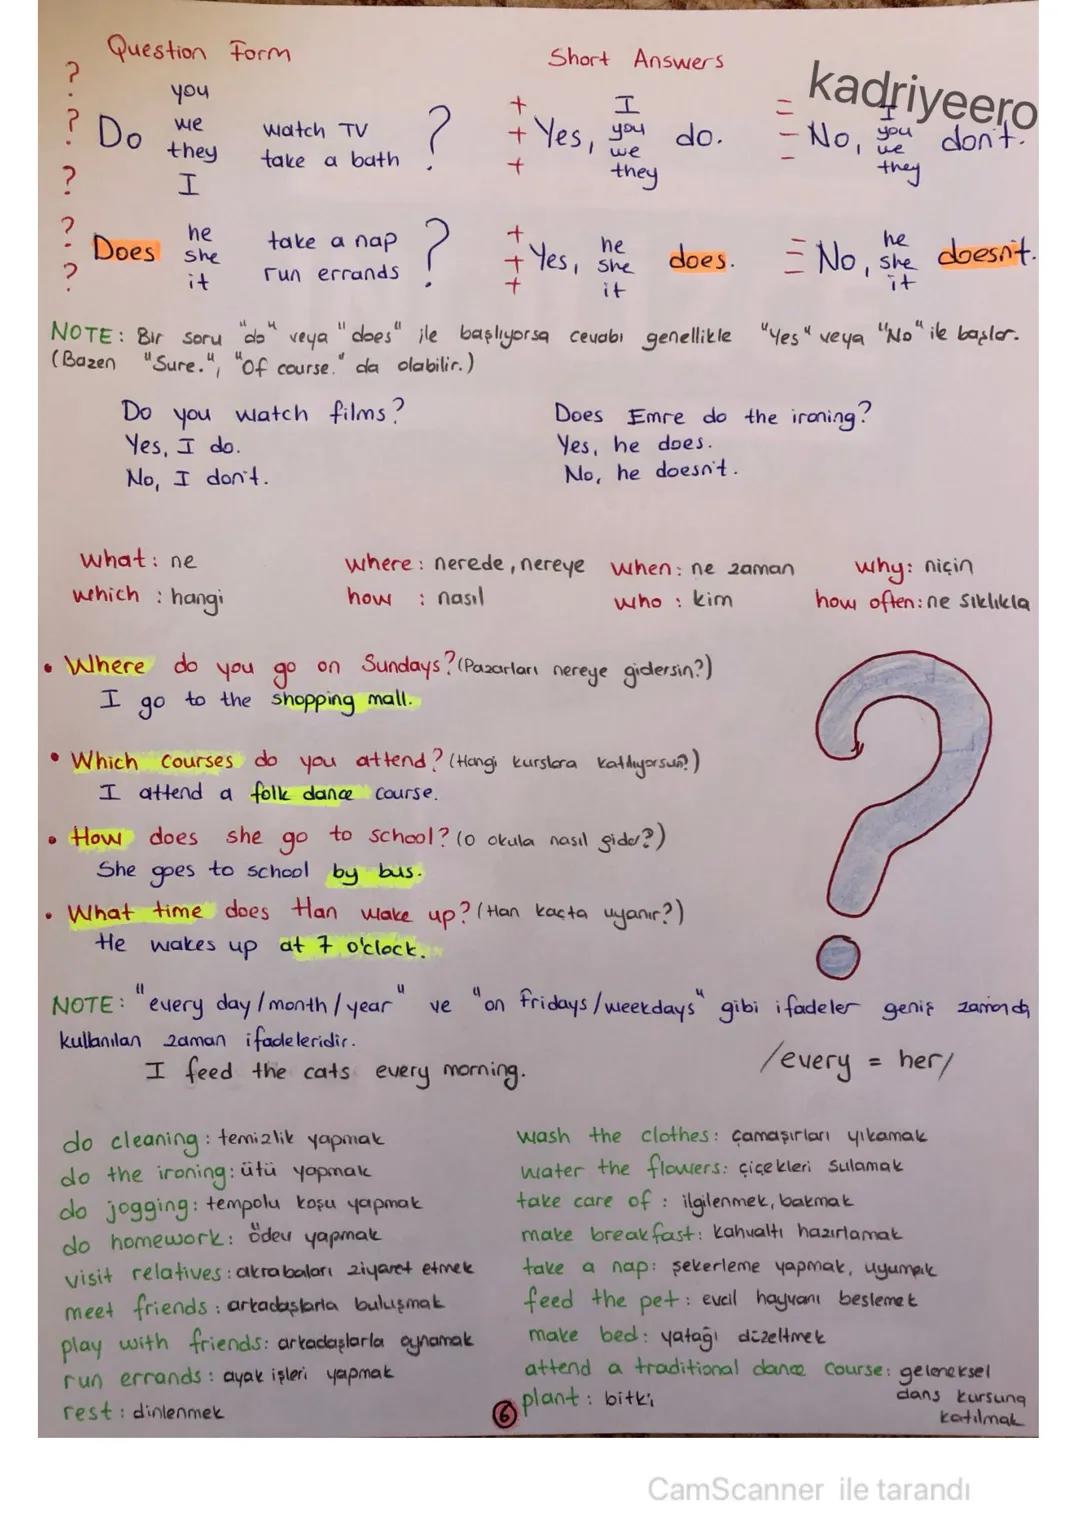 Question Form
Short Answers
kadriyeero
? ? ? ? ?
Do you we they I watch TV take a bath ?
+ + + Yes, I you we they do.
- - - No, I you we they don't.
Does he she it take a nap run errands ?
+ + + Yes, he she it does.
- - - No, he she it doesn't.
NOTE: Bir soru "do" veya "does" ile başlıyorsa cevabı genellikle "Yes" veya "No" ile başlar.
(Bazen "Sure.", "Of course." da olabilir.)
Do you watch films?
Yes, I do.
No, I don't.
Does Emre do the ironing?
Yes, he does.
No, he doesn't.
what: ne where: nerede, nereye when: ne zaman why: niçin
which : hangi how : nasıl who : kim how often: ne sıklıkla
• Where do you go on Sundays? (Pazarları nereye gidersin?)
I go to the shopping mall.
• Which courses do you attend? (Hangi kurslara katılıyorsun?)
I attend a folk dance course.
• How does she go to school? (O okula nasıl gider?)
She goes to school by bus.
• What time does Han wake up? (Han kaçta uyanır?)
He wakes up at 7 o'clock.
?
NOTE: "every day/month/year" ve "on Fridays/weekdays" gibi ifadeler geniş zamanda
kullanılan zaman ifadeleridir.
I feed the cats every morning.
/every = her/
do cleaning: temizlik yapmak
do the ironing: ütü yapmak
do jogging: tempolu koşu yapmak
do homework: ödev yapmak
visit relatives: akrabaları ziyaret etmek
meet friends: arkadaşlarla buluşmak
play with friends: arkadaşlarla oynamak
run errands: ayak işleri yapmak
rest: dinlenmek
wash the clothes: çamaşırları yıkamak
water the flowers: çiçekleri sulamak
take care of : ilgilenmek, bakmak
make breakfast: kahvaltı hazırlamak
take a nap: şekerleme yapmak, uyumak
feed the pet: evcil hayvanı beslemek
make bed: yatağı düzeltmek
attend a traditional dance course: geleneksel
dans kursuna
katılmak
plant: bitki
6
CamScanner ile tarandı